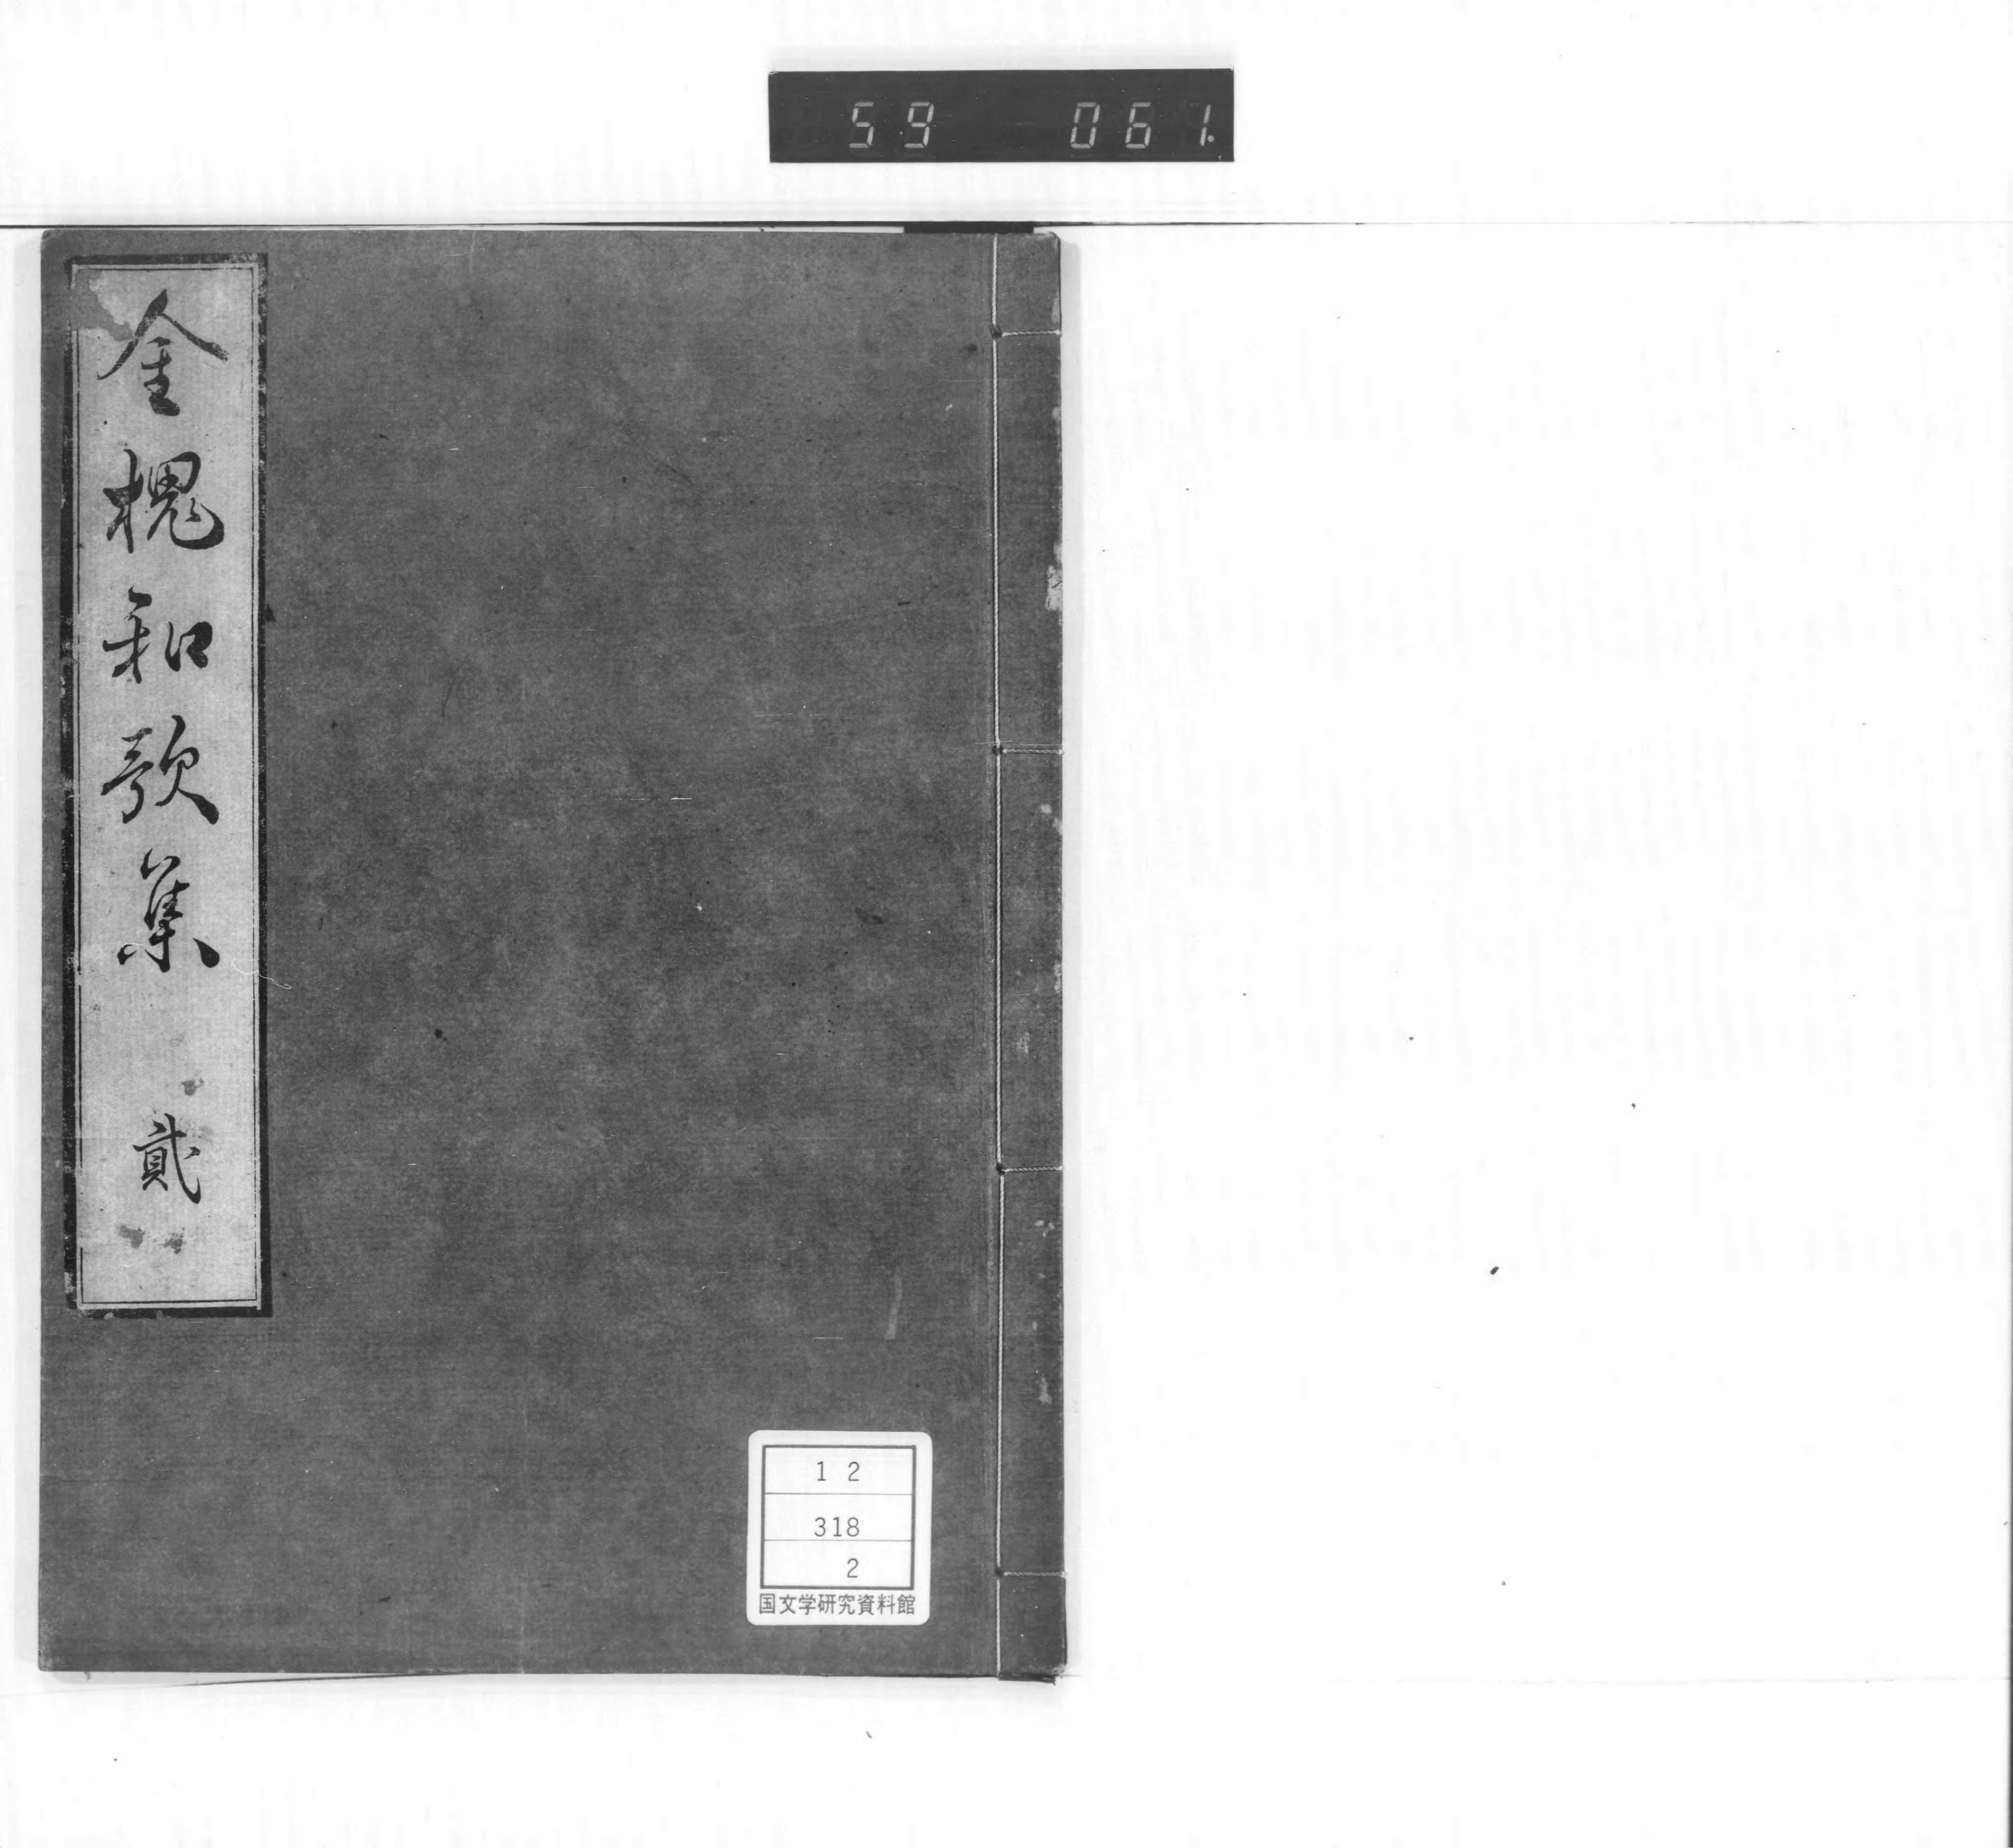 59 061.
金槐和歌集 貳
12
318
2
国文学研究資料館